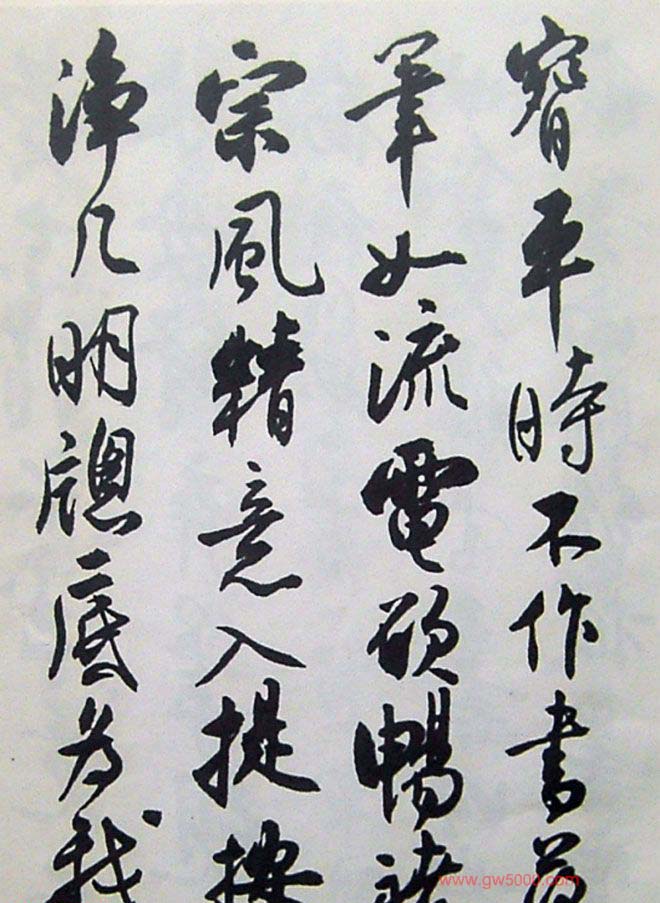 窗平時不作書為
筆如流電頃暢諸
宗風精意入提按
淨几明牕底為我
www.gw5000.com